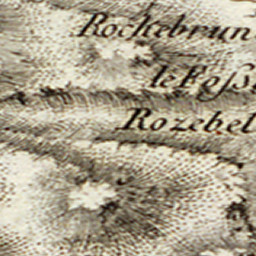 Rockebrun
le Foss
Rozebel